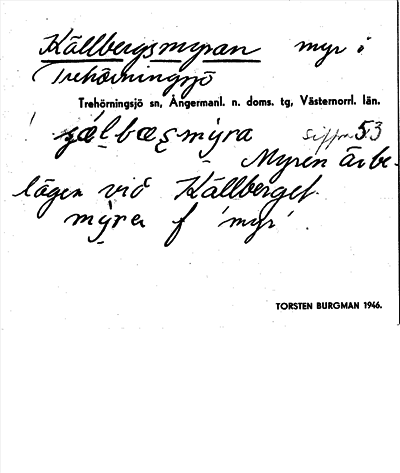 Källbergsmyran myr i
Trehörningsjö
Trehörningsjö sn, Ångermanl. n. doms. tg, Västernorrl. län.
siffra 53
Myren är be-
lägen vid Källberget.
f 'myr'.
TORSTEN BURGMAN 1946.